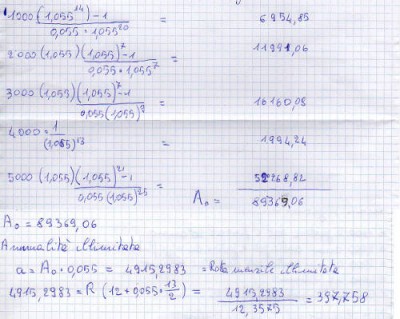 1000 (1,055^14) - 1 / 0,055 · 1,055^20 = 6954,85
2000 (1,055) (1,055)^7 - 1 / 0,055 · 1,055^7 = 11991,06
3000 (1,055) (1,055)^7 - 1 / 0,055 (1,055)^9 = 16160,08
4000 = 1 / (1,055)^13 = 1994,24
5000 (1,055) (1,055)^21 - 1 / 0,055 (1,055)^25 = 52268,82
A₀ = 89369,06
A₀ = 89369,06
Annualità illimitate
a = A₀ · 0,055 = 4915,2983 = Rata mensile illimitate
4915,2983 = R (12 + 0,055 · 13/2) = 4915,2983 / 12,3575 = 397,758